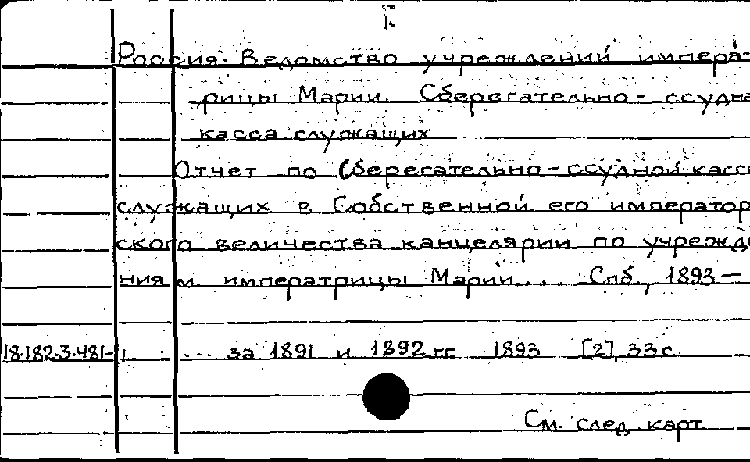 Россия. Ведомство учреждений импера-
рицы Марии. Сберегательно-ссудна
касса служащих
Отчет по Сберегательно-ссудной касс
служащих в Собственной его император
ского величества канцелярии по учрежд
ниям императрицы Марии... Спб., 1893-
18.182.3.481- за 1891 и 1892 гг. 1893 [2], 33 с.
См. след. карт.